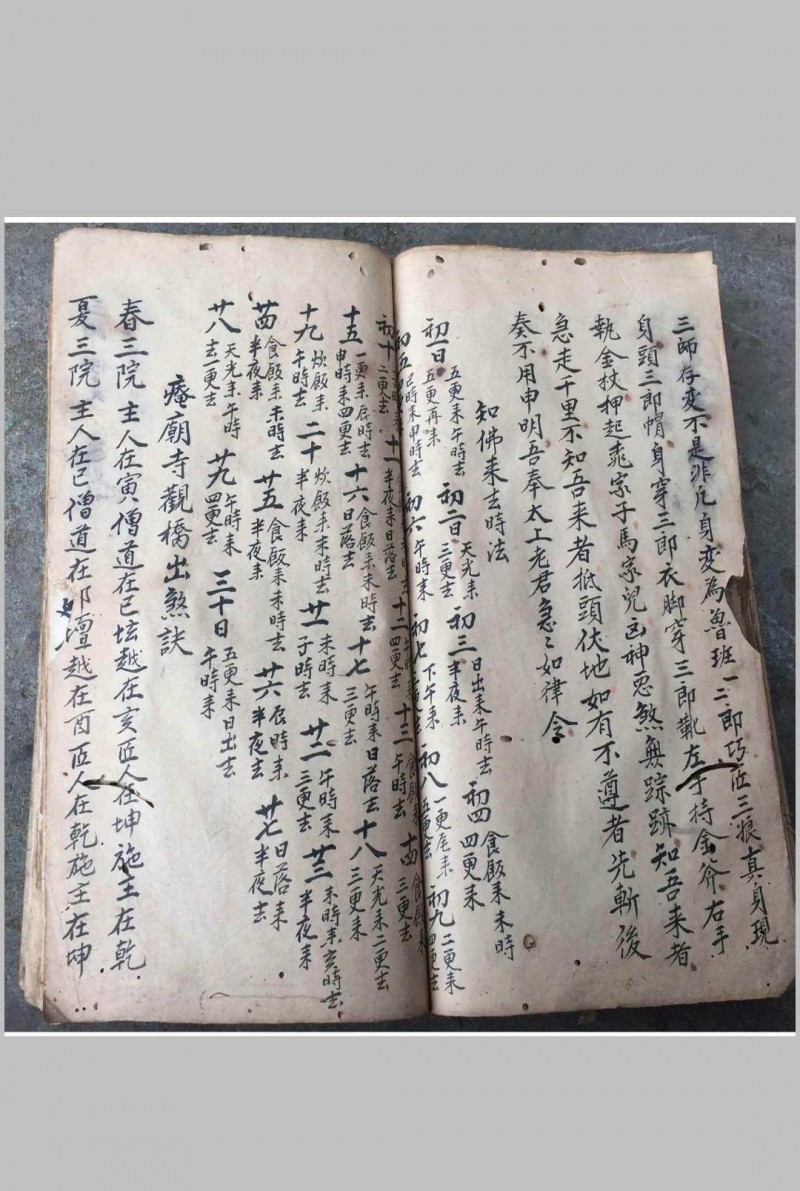 三師存変不是非凡身変為魯班一二郎巧匠三狼真身現
身頭三郎帽身穿三郎衣脚穿三郎靴左手持金斧右手
執金杖押起乖家子馬家児凶神悪煞無踪跡知吾来者
急走千里不知吾来者抵頭伏地如有不遵者先斬後
奏不用申明吾奉太上老君急〻如律令
知佛来去時法
初一日五更来午時去五更再来 初二日天光来三更去 初三日出来午時去半夜来 初四食飯来未時四更来
初五巳時来申時去 初六午時来 初七下午来 初八一更尾来五更去 初九二更来四更去
初十二更去 十一半夜来日落去 十二四更去 十三食飯来午時去 十四食飯三更去
十五一更来辰時去申時来四更去 十六食飯来未時去日落去 十七午時来日落去三更去 十八天光来二更去三更来
十九炊飯来午時去 二十炊飯来未時去半夜来 廿一未時来子時去 廿二午時来三更去 廿三未時来亥時去半夜来
廿四食飯来未時去半夜来 廿五食飯来未時去半夜来 廿六辰時来半夜去 廿七日落来半夜去
廿八天光来午時去一更去 廿九午時来四更去 三十日五更来日出去午時来
庵廟寺觀橋出煞訣
春三院主人在寅僧道在巳坛越在亥匠人在坤施主在乾
夏三院主人在巳僧道在卯壇越在酉匠人在乾施主在坤